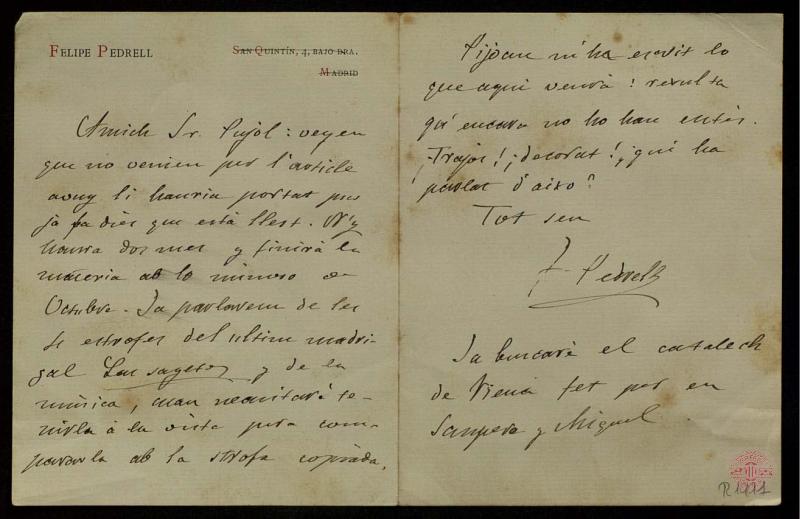 FELIPE PEDRELL
SAN QUINTÍN, 4, BAJO DRA.
MADRID
Amich Sr. Pujol: veyen
que no venien per l'article
avuy li hauria portat pus
ja fa dies que está llest. N'y
haurá dos mes y finirá la
materia ab lo número de
Octubre. Ja parlarem de les
estrofes del ultim madri-
gal Las sagetas y de la
música, man necesitaré te-
nirla á la vista pera com-
pararla ab la strofa copiada.
Pijoan m'ha escrit lo
que aquí vourá: resulta
qu'encara no ho han entés.
¡Trajos! ¡decorat! ¿qui ha
parlat d'aixo?
Tot seu
F. Pedrell
Ja buscaré el catalech
de Viena fet per en
Sanpere y Miquel.
R 1991